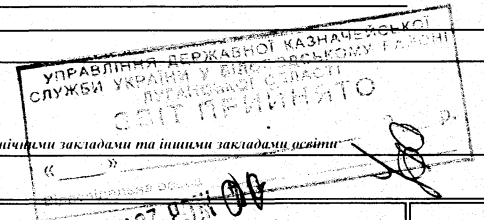 УПРАВЛІННЯ ДЕРЖАВНОЇ КАЗНАЧЕЙСЬКОЇ
СЛУЖБИ УКРАЇНИ У БІЛОВОДСЬКОМУ РАЙОНІ
ЛУГАНСЬКОЇ ОБЛАСТІ
ЗВІТ ПРИЙНЯТО
нічними закладами та іншими закладами освіти
« » р.